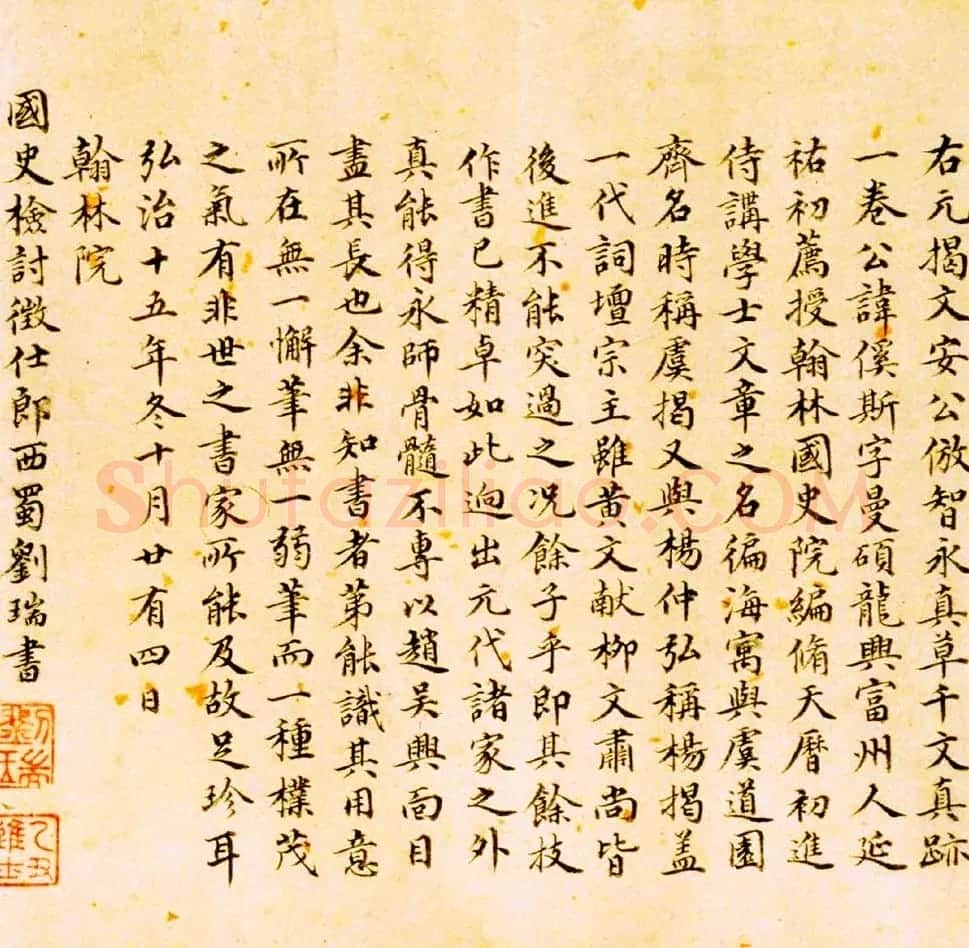 右元揭文安公倣智永真草千文真跡
一卷公諱傒斯字曼碩龍興富州人延
祐初薦授翰林國史院編脩天曆初進
侍講學士文章之名徧海寓與虞道園
齊名時稱虞揭又與楊仲弘稱楊揭盖
一代詞壇宗主雖黃文献柳文肅尚皆
後進不能突過之况餘子乎即其餘技
作書已精卓如此逈出元代諸家之外
真能得永師骨髓不專以趙吴興靣目
盡其長也余非知書者第能識其用意
所在無一懈筆無一弱筆而一種樸茂
之氣有非世之書家所能及故足珍耳
弘治十五年冬十月廿有四日
翰林院
國史檢討徵仕郎西蜀劉瑞書
Shufaziliao.COM